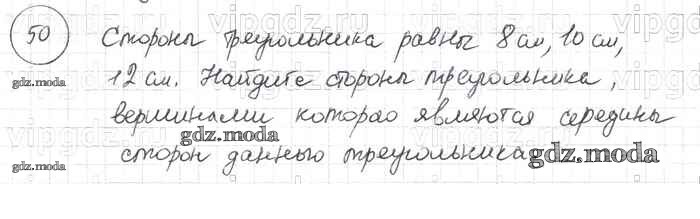 50 Стороны треугольника равны 8 см, 10 см,
gdz.moda 12 см. Найдите стороны треугольника,
вершинами которого являются середины
gdz.moda
gdz.moda сторон данного треугольника gdz.moda
vipgdz.com vipgdz.com vipgdz.com